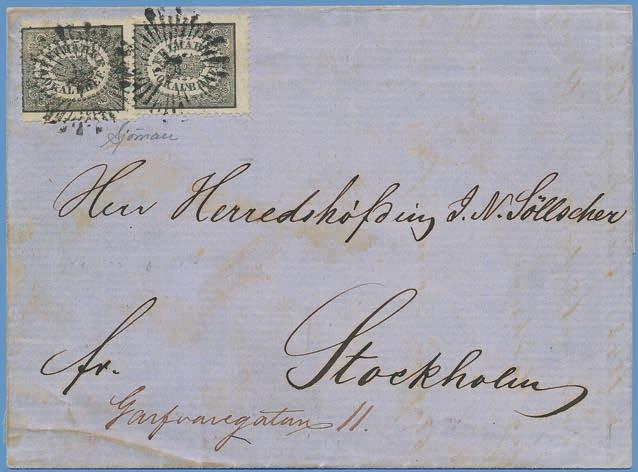 Sjöman
Herr Herredshöfding J. N. Söllscher
fr. Stockholm
Garfvaregatan 11.